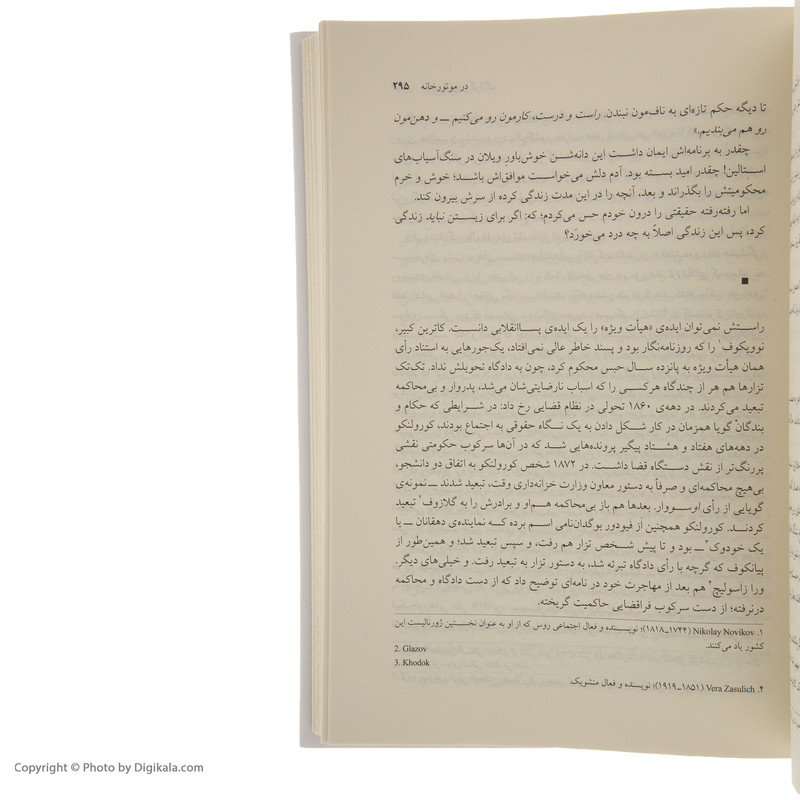 در موتورخانه ۲۹۵
تا دیگه حکم تازه‌ای به ناف‌مون نبندن. راست و درست، کارمون رو می‌کنیم ــ و دهن‌مون
رو هم می‌بندیم.»
چقدر به برنامه‌اش ایمان داشت این دانه‌شن خوش‌باورِ ویلان در سنگ‌آسیاب‌های
استالین! چقدر امید بسته بود. آدم دلش می‌خواست موافق‌اش باشد؛ خوش و خرم
محکومیتش را بگذراند و بعد، آنچه را در این مدت زندگی کرده از سرش بیرون کند.
اما رفته‌رفته حقیقتی را درون خودم حس می‌کردم؛ که: اگر برای زیستن نباید زندگی
کرد، پس این زندگی اصلاً به چه درد می‌خورَد؟
■
راستش نمی‌توان ایده‌ی «هیأت ویژه» را یک ایده‌ی پساانقلابی دانست. کاترین کبیر،
نوویکوف۱ را که روزنامه‌نگار بود و پسند خاطر عالی نمی‌افتاد، یک‌جورهایی به استناد رأی
همان هیأت ویژه به پانزده سال حبس محکوم کرد، چون به دادگاه تحویلش نداد. تک‌تک
تزارها هم هر از چندگاه هرکسی را که اسباب نارضایتی‌شان می‌شد، پدروار و بی‌محاکمه
تبعید می‌کردند. در دهه‌ی ۱۸۶۰ تحولی در نظام قضایی رخ داد: در شرایطی که حکام و
بندگانْ گویا همزمان در کار شکل دادن به یک نگاه حقوقی به اجتماع بودند، کورولنکو
در دهه‌های هفتاد و هشتاد پیگیر پرونده‌هایی شد که در آن‌ها سرکوب حکومتی نقشی
پررنگ‌تر از نقش دستگاه قضا داشت. در ۱۸۷۲ شخص کورولنکو به اتفاق دو دانشجو،
بی‌هیچ محاکمه‌ای و صرفاً به دستور معاون وزارت خزانه‌داری وقت، تبعید شدند ــ نمونه‌ی
گویایی از رأی اوسووار. بعدها هم باز بی‌محاکمه هم‌او و برادرش را به گلازوف۲ تبعید
کردند. کورولنکو همچنین از فیودور بوگدان‌نامی اسم برده که نماینده‌ی دهقانان ــ یا
یک خودوک۳ ــ بود و تا پیش شخص تزار هم رفت، و سپس تبعید شد؛ و همین‌طور از
پیانکوف که گرچه با رأی دادگاه تبرئه شد، به دستور تزار به تبعید رفت. و خیلی‌های دیگر.
ورا زاسولیچ۴ هم بعد از مهاجرت خود در نامه‌ای توضیح داد که از دست دادگاه و محاکمه
درنرفته؛ از دست سرکوب فراقضایی حاکمیت گریخته.
۱. Nikolay Novikov (۱۷۴۴ـ۱۸۱۸)؛ نویسنده و فعال اجتماعی روس که از او به عنوان نخستین ژورنالیست این
کشور یاد می‌کنند.
2. Glazov
3. Khodok
۴. Vera Zasulich (۱۸۵۱ـ۱۹۱۹)؛ نویسنده و فعال منشویک.
Copyright © Photo by Digikala.com